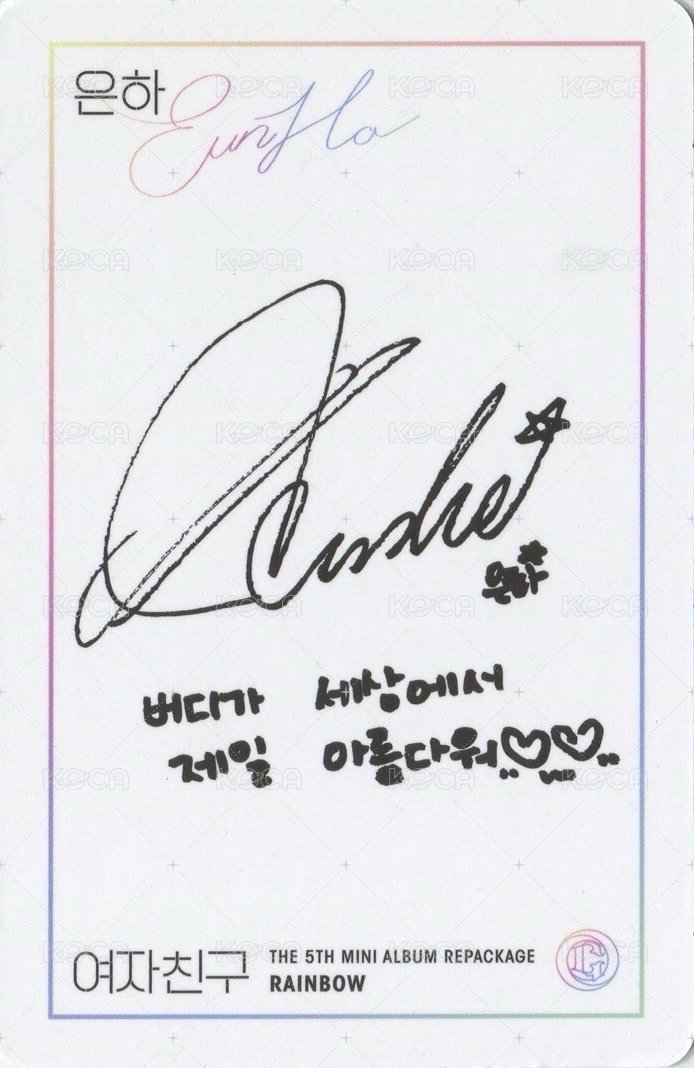 은하 EunHa
Eunha
은하
버디가 세상에서
제일 아름다워♡♡
여자친구 THE 5TH MINI ALBUM REPACKAGE
RAINBOW
G
KOCA